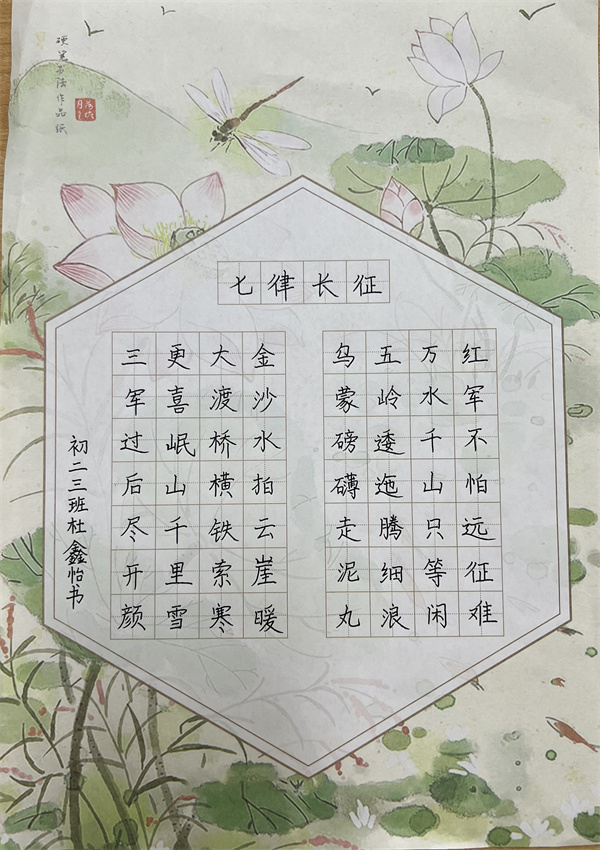 硬笔书法作品纸
七律长征
红军不怕远征难
万水千山只等闲
五岭逶迤腾细浪
乌蒙磅礴走泥丸
金沙水拍云崖暖
大渡桥横铁索寒
更喜岷山千里雪
三军过后尽开颜
初二三班杜鑫怡书